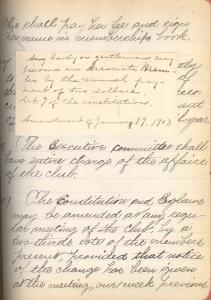 who shall pay her fee and sign
her name in membership book.
Any lady or gentleman may
become an Associate Mem-
ber by the annual pay-
ment of two dollars.
Art. 7 of the constitution.
Amendment of January 19, 1903
The Executive committee shall
have entire charge of the affairs
of the club.
The Constitution and Bylaws
may be amended at any regu-
lar meeting of the Club, by a
two-thirds vote of the members
present, provided that notice
of the change has been given
at the meeting one week previous